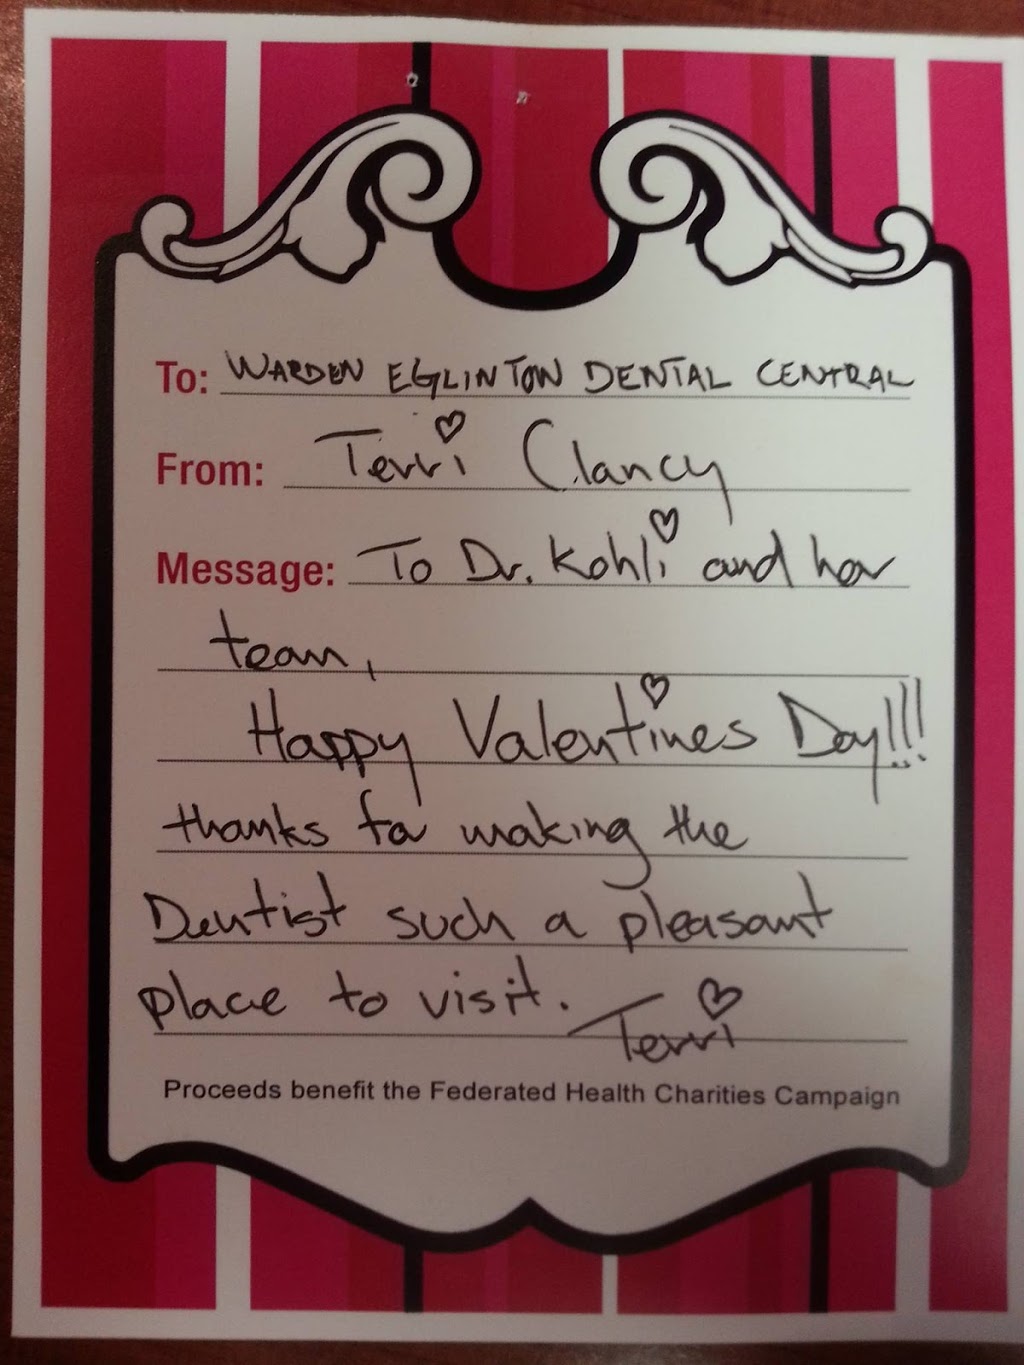 To: WARDEN EGLINTON DENTAL CENTRAL
From: Terri Clancy
Message: To Dr. Kohli and her
team,
Happy Valentines Day!!!
thanks for making the
Dentist such a pleasant
place to visit. Terri
Proceeds benefit the Federated Health Charities Campaign